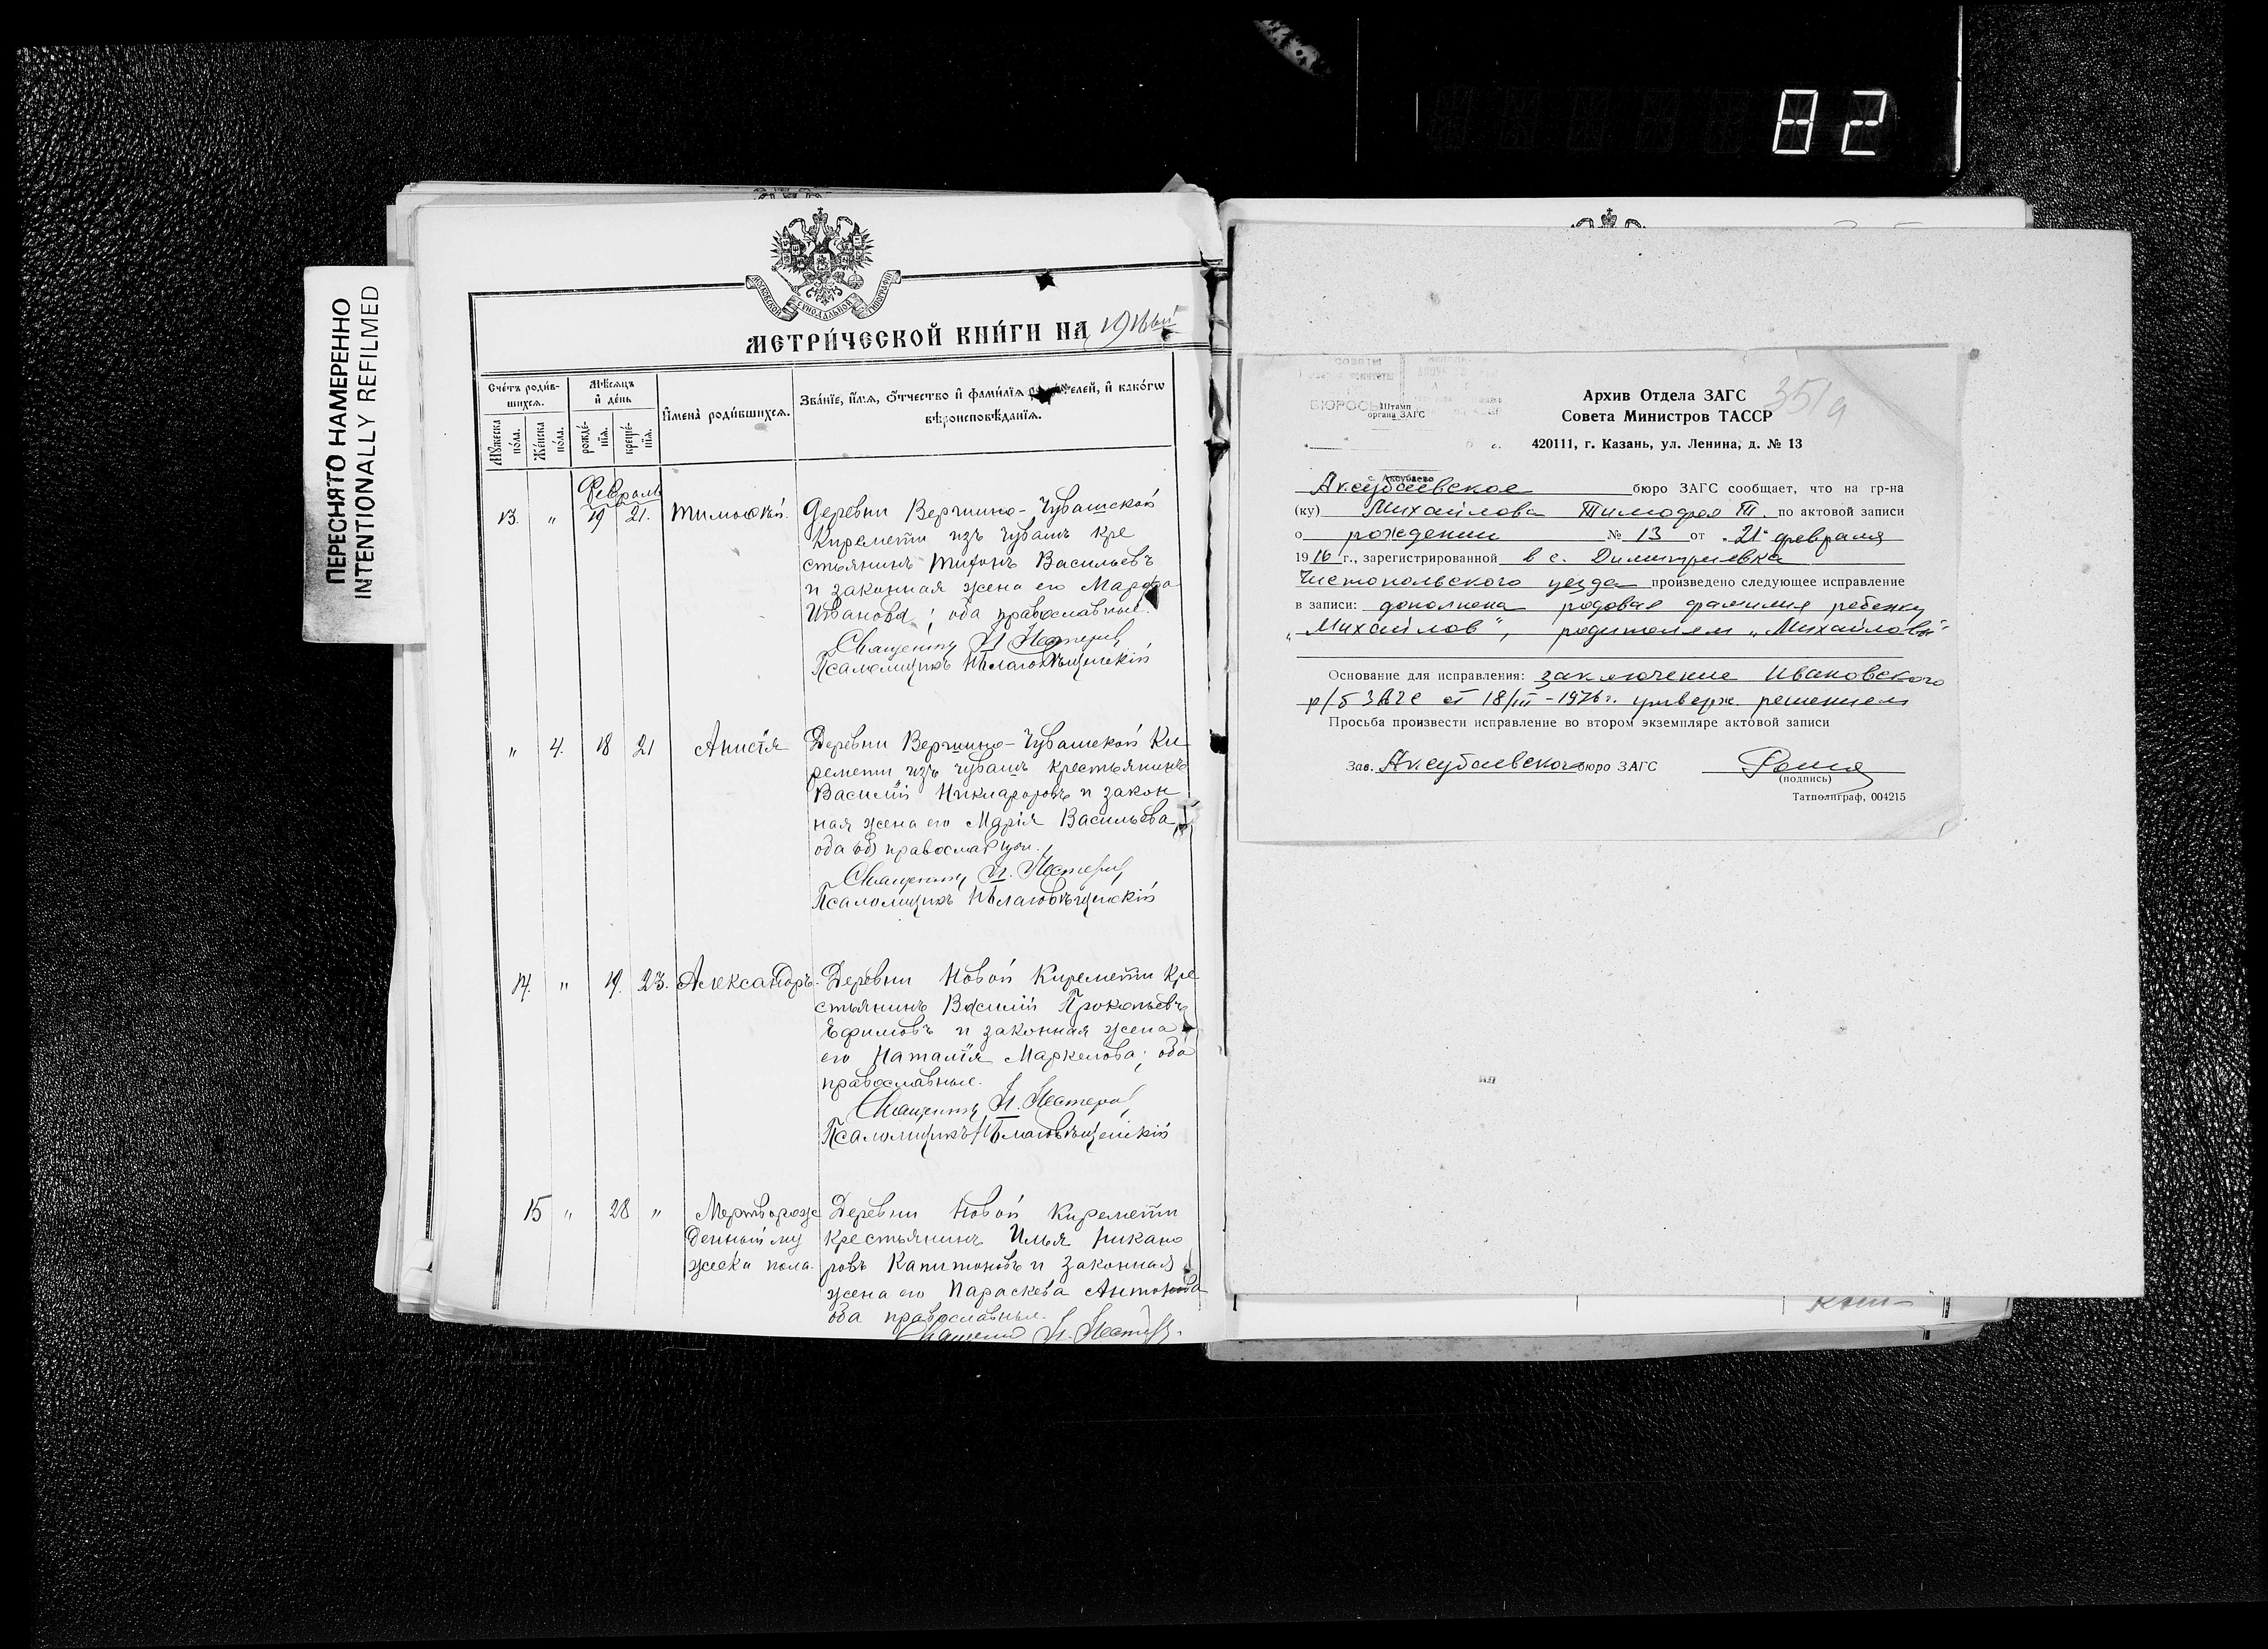 82
ПЕРЕСНЯТО НАМЕРЕННО
INTENTIONALLY REFILMED
МОСКОВСКОЙ СѴНОДАЛЬНОЙ ТИПОГРАФІИ
МЕТРИ́ЧЕСКОЙ КНИ́ГИ НА 1916ый
Сче́тъ роди́вшихся.
Мѣ́сяцъ и де́нь
Имена̀ роди́вшихся.
Зва́нїе, и́мя, о́тчество и фами́лїя родителей, и како́гѡ
вѣроисповѣ́данїя.
Му́жеска по́ла.
Же́нска по́ла.
рожде́нїя.
креще́нїя.
Февраль
13. " 19 21. Тимоѳей. Деревни Вершино-Чувашской
Киремети изъ чувашъ кре
стьянинъ Тифонъ Васильевъ
и законная жена его Марфа
Иванова; оба православные.
Священникъ П. Нестеровъ
Псаломщикъ Благовѣщенскій
" 4. 18 21 Анисія Деревни Вершино-Чувашской Ки
ремети изъ чувашъ крестьянинъ
Василій Никифоровъ и закон
ная жена его Марія Васильева,
оба православн.
Священникъ П. Нестеровъ
Псаломщикъ Благовѣщенскій
14. " 19. 23. Александръ. Деревни Новой Киремети кре
стьянинъ Василій Прокопьевъ
Ефимовъ и законная жена
его Наталія Маркелова; оба
православные.
Священникъ П. Нестеровъ
Псаломщикъ Благовѣщенскій
15 " 28 " Мертворож
денный му
жска пола. Деревни Новой Киремети
крестьянинъ Илья Никано
ровъ Капитоновъ и законная
жена его Параскева Антонова
оба православные.
Священникъ П. Нестеровъ.
351а
Штамп
органа ЗАГС
с. Аксубаево
Архив Отдела ЗАГС
Совета Министров ТАССР
420111, г. Казань, ул. Ленина, д. № 13
Аксубаевское бюро ЗАГС сообщает, что на гр-на
(ку) Михайлова Тимофея Т. по актовой записи
о рождении № 13 от "21" февраля
1916 г., зарегистрированной в с. Димитриевка
Чистопольского уезда произведено следующее исправление
в записи: дополнена родовая фамилия ребенку
"Михайлов", родителям "Михайловы"
Основание для исправления: заключение Ивановского
р/б ЗАГС от 18/III-1976г. утвержж. решением
Просьба произвести исправление во втором экземпляре актовой записи
Зав. Аксубаевского бюро ЗАГС
(подпись)
Татполиграф, 004215